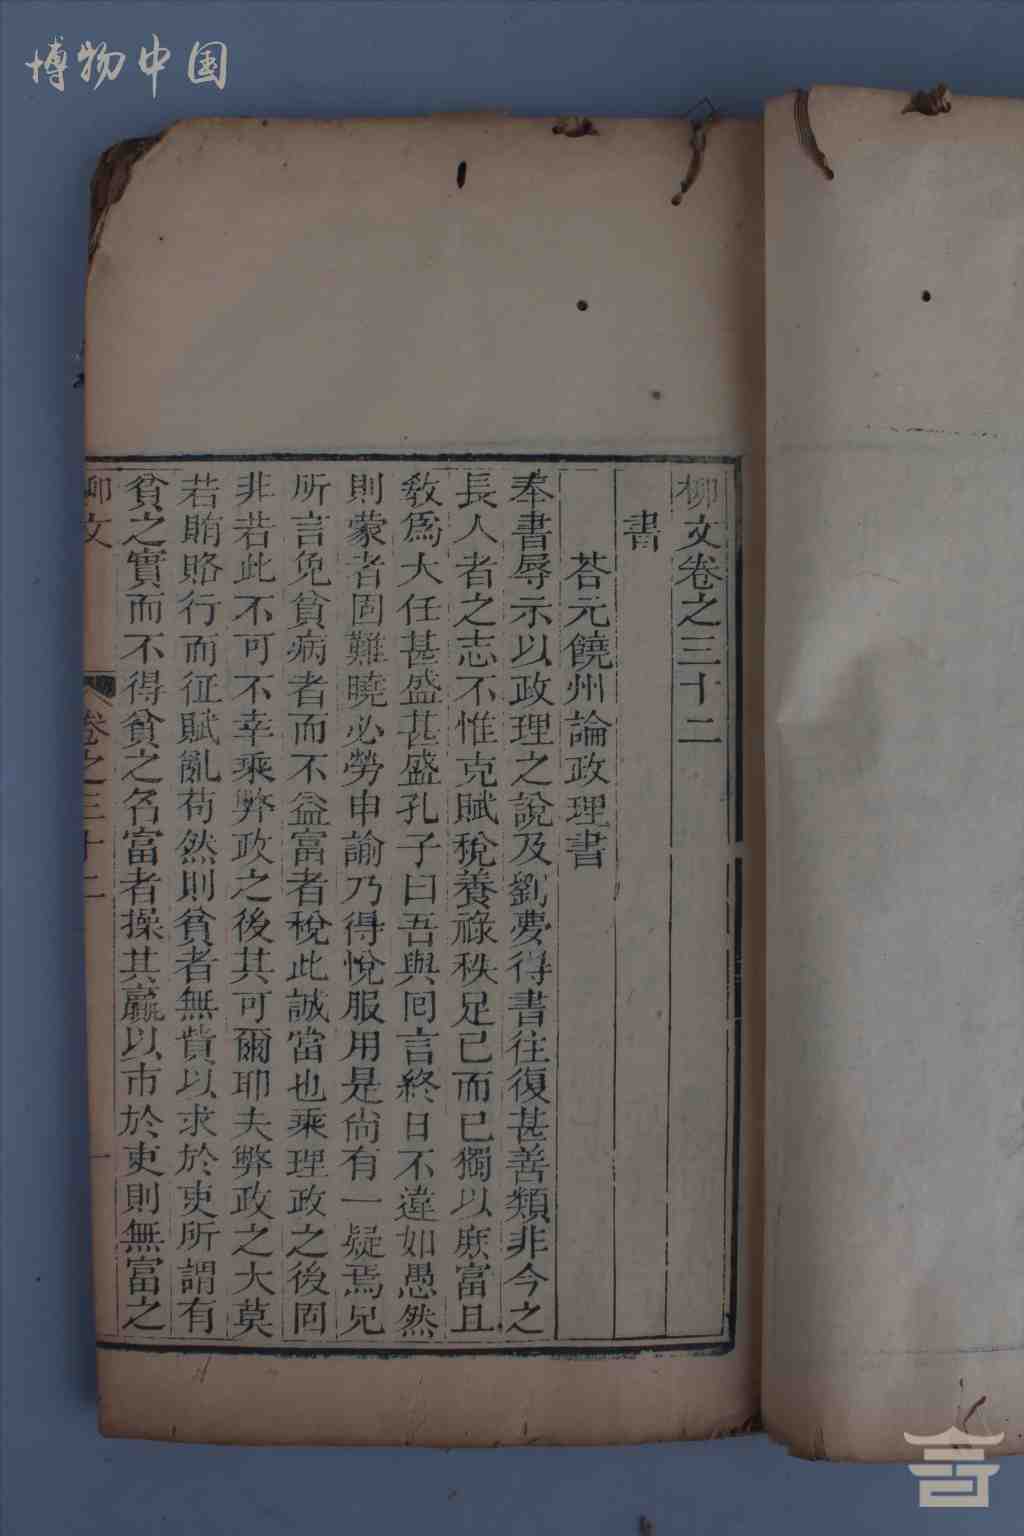 博物中国
柳文卷之三十二
書
荅元饒州論政理書
奉書辱示以政理之說及劉夢得書往復甚善類非今之
長人者之志不惟克賦稅養祿秩足已而已獨以庶富且
敎爲大任甚盛甚盛孔子曰吾與囘言終日不違如愚然
則蒙者固難曉必勞申諭乃得悅服用是尙有一疑焉兄
所言免貧病者而不益富者稅此誠當也乘理政之後固
非若此不可不幸乘弊政之後其可爾耶夫弊政之大莫
若賄賂行而征賦亂苟然則貧者無貲以求於吏所謂有
貧之實而不得貧之名富者操其贏以市於吏則無富之
柳文 卷之三十二 一